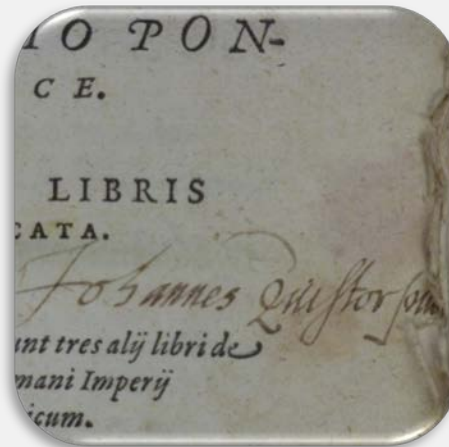 IO PON-
CE.
LIBRIS
CATA.
Johannes Quistor
unt tres alij libri de
mani Imperij
icum.